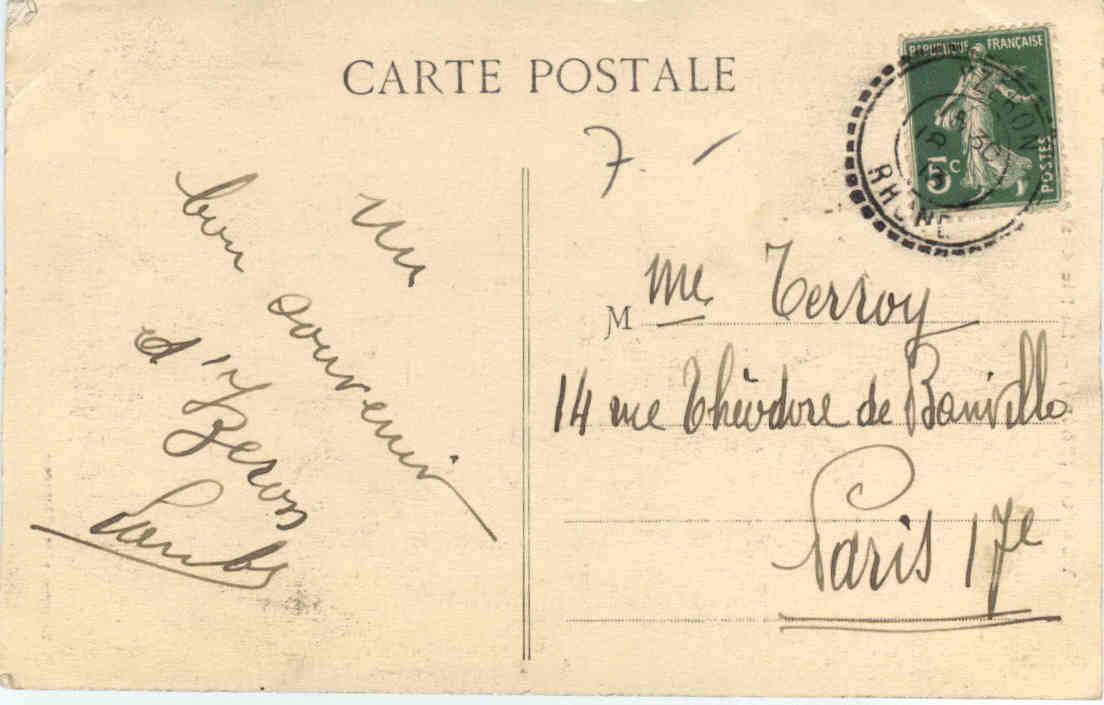 CARTE POSTALE
RÉPUBLIQUE FRANÇAISE
5c
POSTES
RHONE
7. -
un
bon souvenir
d'Yzeron
M me Terroy
14 rue Théodore de Banville
Paris 17e